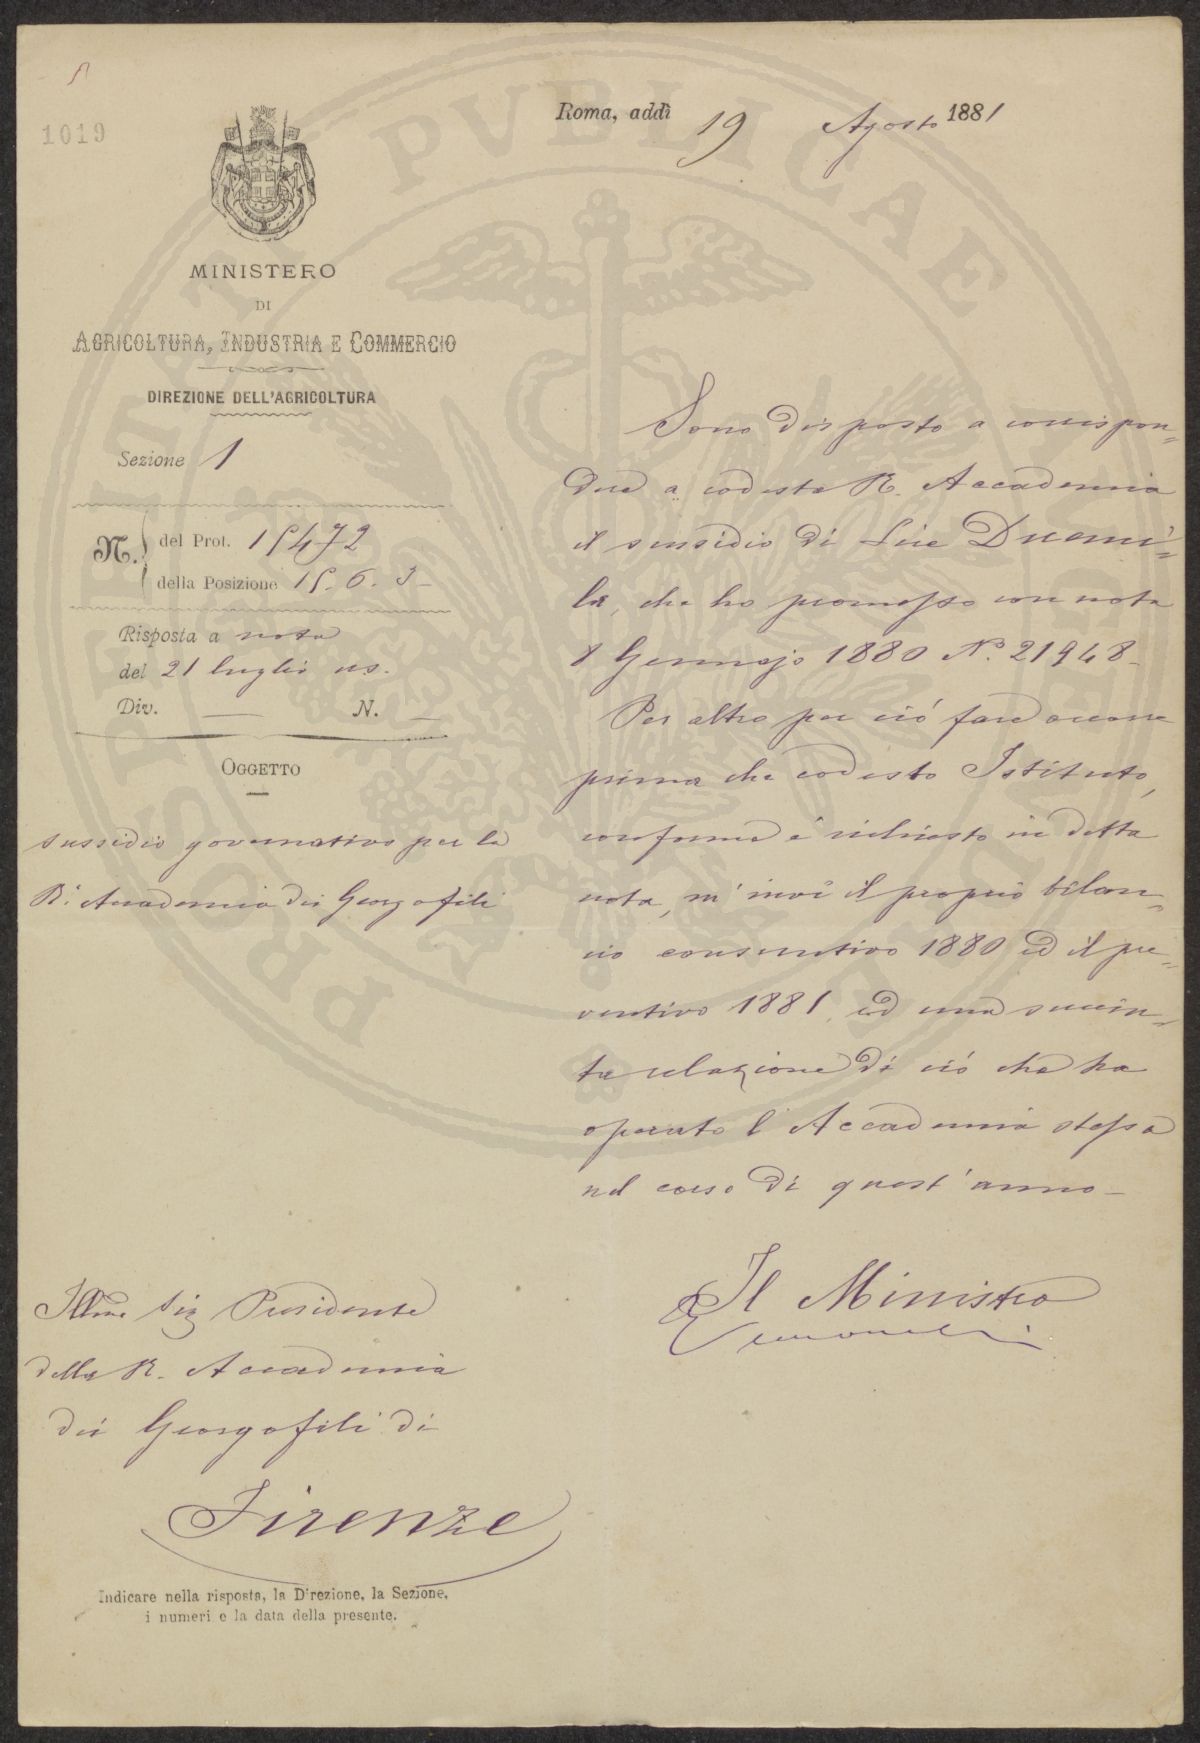 1019
Roma, addì 19 Agosto 1881
MINISTERO
DI
AGRICOLTURA, INDUSTRIA E COMMERCIO
DIREZIONE DELL'AGRICOLTURA
Sezione 1
N. del Prot. 15472
della Posizione 15. 6. 3
Risposta a nota
del 21 luglio us.
Div. — N. —
OGGETTO
sussidio governativo per la
R. Accademia dei Georgofili
Sono disposto a corrispon=
dere a codesta R. Accademia
il sussidio di Lire Duemi=
la, che ho promesso con nota
8 Gennajo 1880 N.° 21948-
Per altro per ciò fare occorre
prima che codesto Istituto,
conforme è richiesto in detta
nota, m'invii il proprio bilan=
cio consuntivo 1880 ed il pre=
ventivo 1881, ed una succin=
ta relazione di ciò che ha
operato l'Accademia stessa
nel corso di quest'anno-
Il Ministro
Illmo Sig Presidente
della R. Accademia
dei Georgofili di
Firenze
Indicare nella risposta, la Direzione, la Sezione,
i numeri e la data della presente.
PROSPERITATI PVBLICAE AVGENDAE